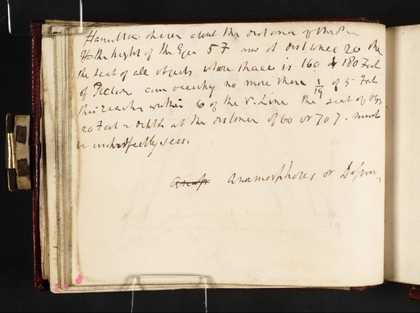 Hamilton shews about the distance of
If the height of the Eye 5 F and at distance 20 the
the seat of all objects whose space is 160 180 Feet
of Picture can occupy no more than 1/19 of 5 Feet
this reaches within 6 of the V. Line the seat of
20 Feet depth at the distance of 60 or 70 7. must
be imperfectly seen.
Anamorphoses or